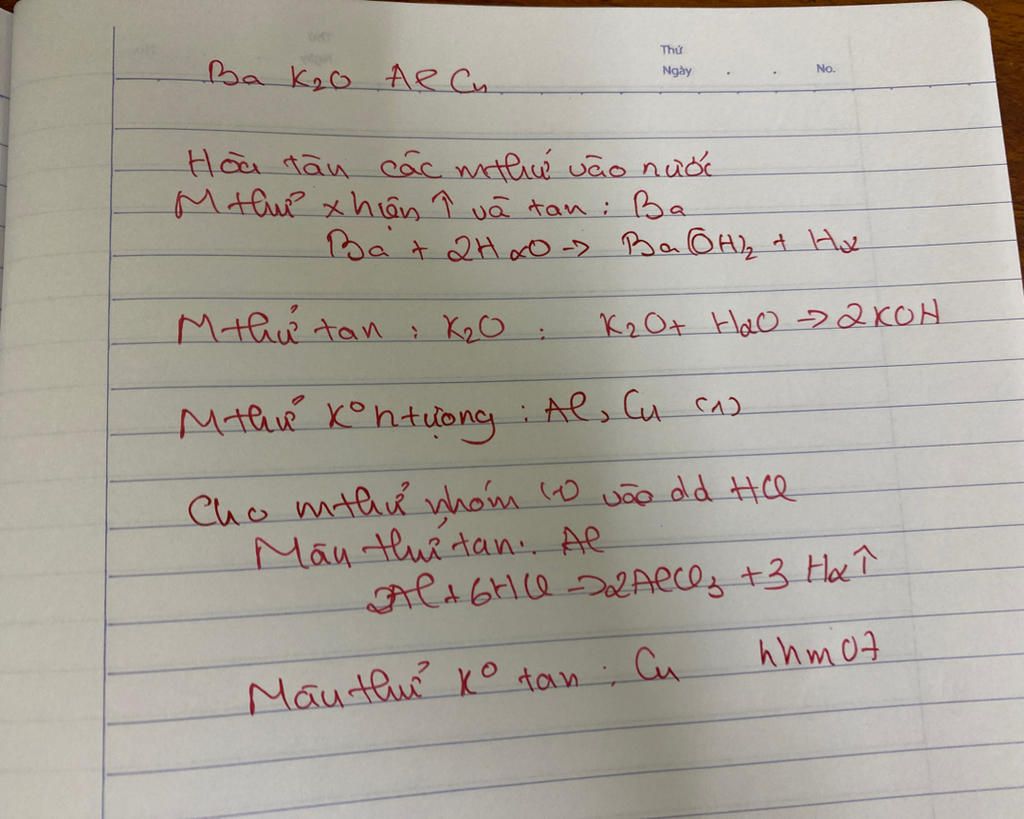 Thứ
Ngày . . No.
Ba K2O Al Cu
Hòa tan các mthử vào nước
Mthử xhiện ↑ và tan : Ba
Ba + 2H2O → Ba(OH)2 + H2
Mthử tan : K2O : K2O + H2O → 2KOH
Mthử Kº htượng : Al, Cu (1)
Cho mthử nhóm (1) vào dd HCl
Mẫu thử tan : Al
2Al + 6HCl → 2AlCl3 + 3H2↑
Mẫu thử Kº tan : Cu hhm07